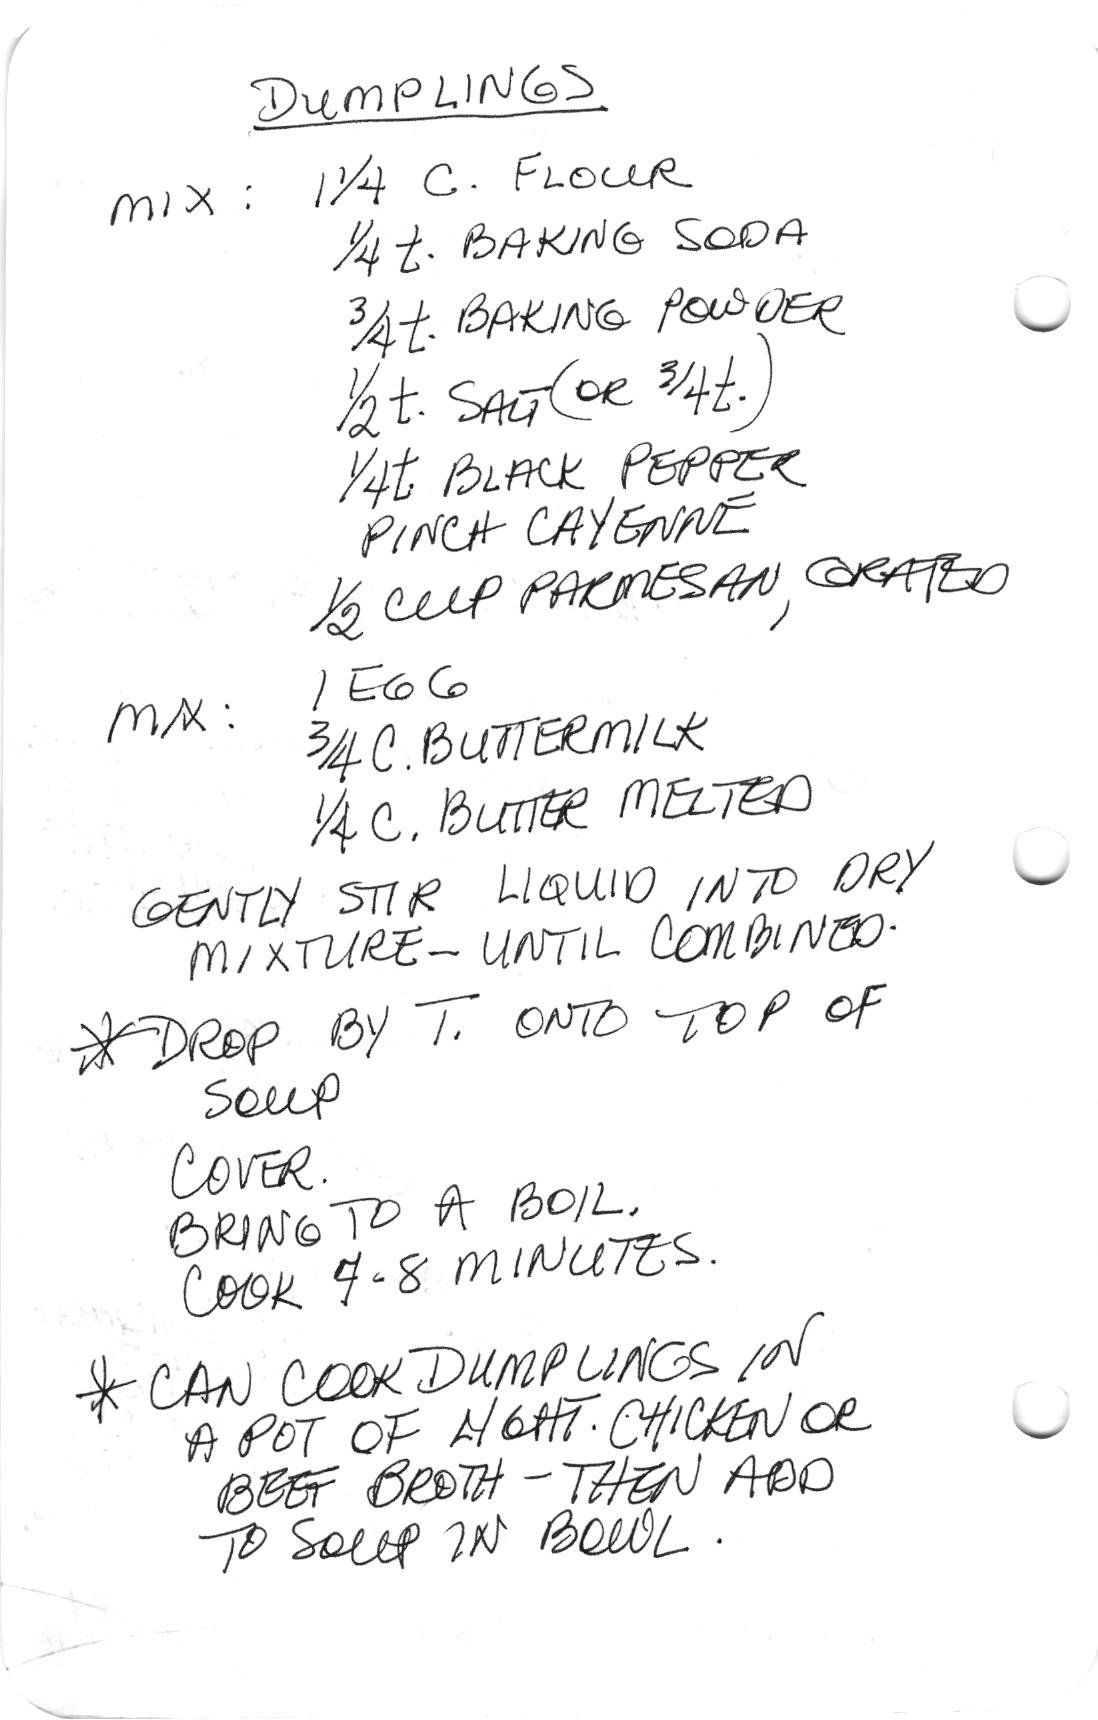 DUMPLINGS
MIX: 1 1/4 C. FLOUR
1/4 t. BAKING SODA
3/4 t. BAKING POWDER
1/2 t. SALT (OR 3/4 t.)
1/4 t. BLACK PEPPER
PINCH CAYENNE
1/2 CUP PARMESAN, GRATED
MIX: 1 EGG
3/4 C. BUTTERMILK
1/4 C. BUTTER MELTED
GENTLY STIR LIQUID INTO DRY
MIXTURE - UNTIL COMBINED.
* DROP BY T. ONTO TOP OF
SOUP
COVER.
BRING TO A BOIL.
COOK 7-8 MINUTES.
* CAN COOK DUMPLINGS IN
A POT OF LIGHT. CHICKEN OR
BEEF BROTH - THEN ADD
TO SOUP IN BOWL.